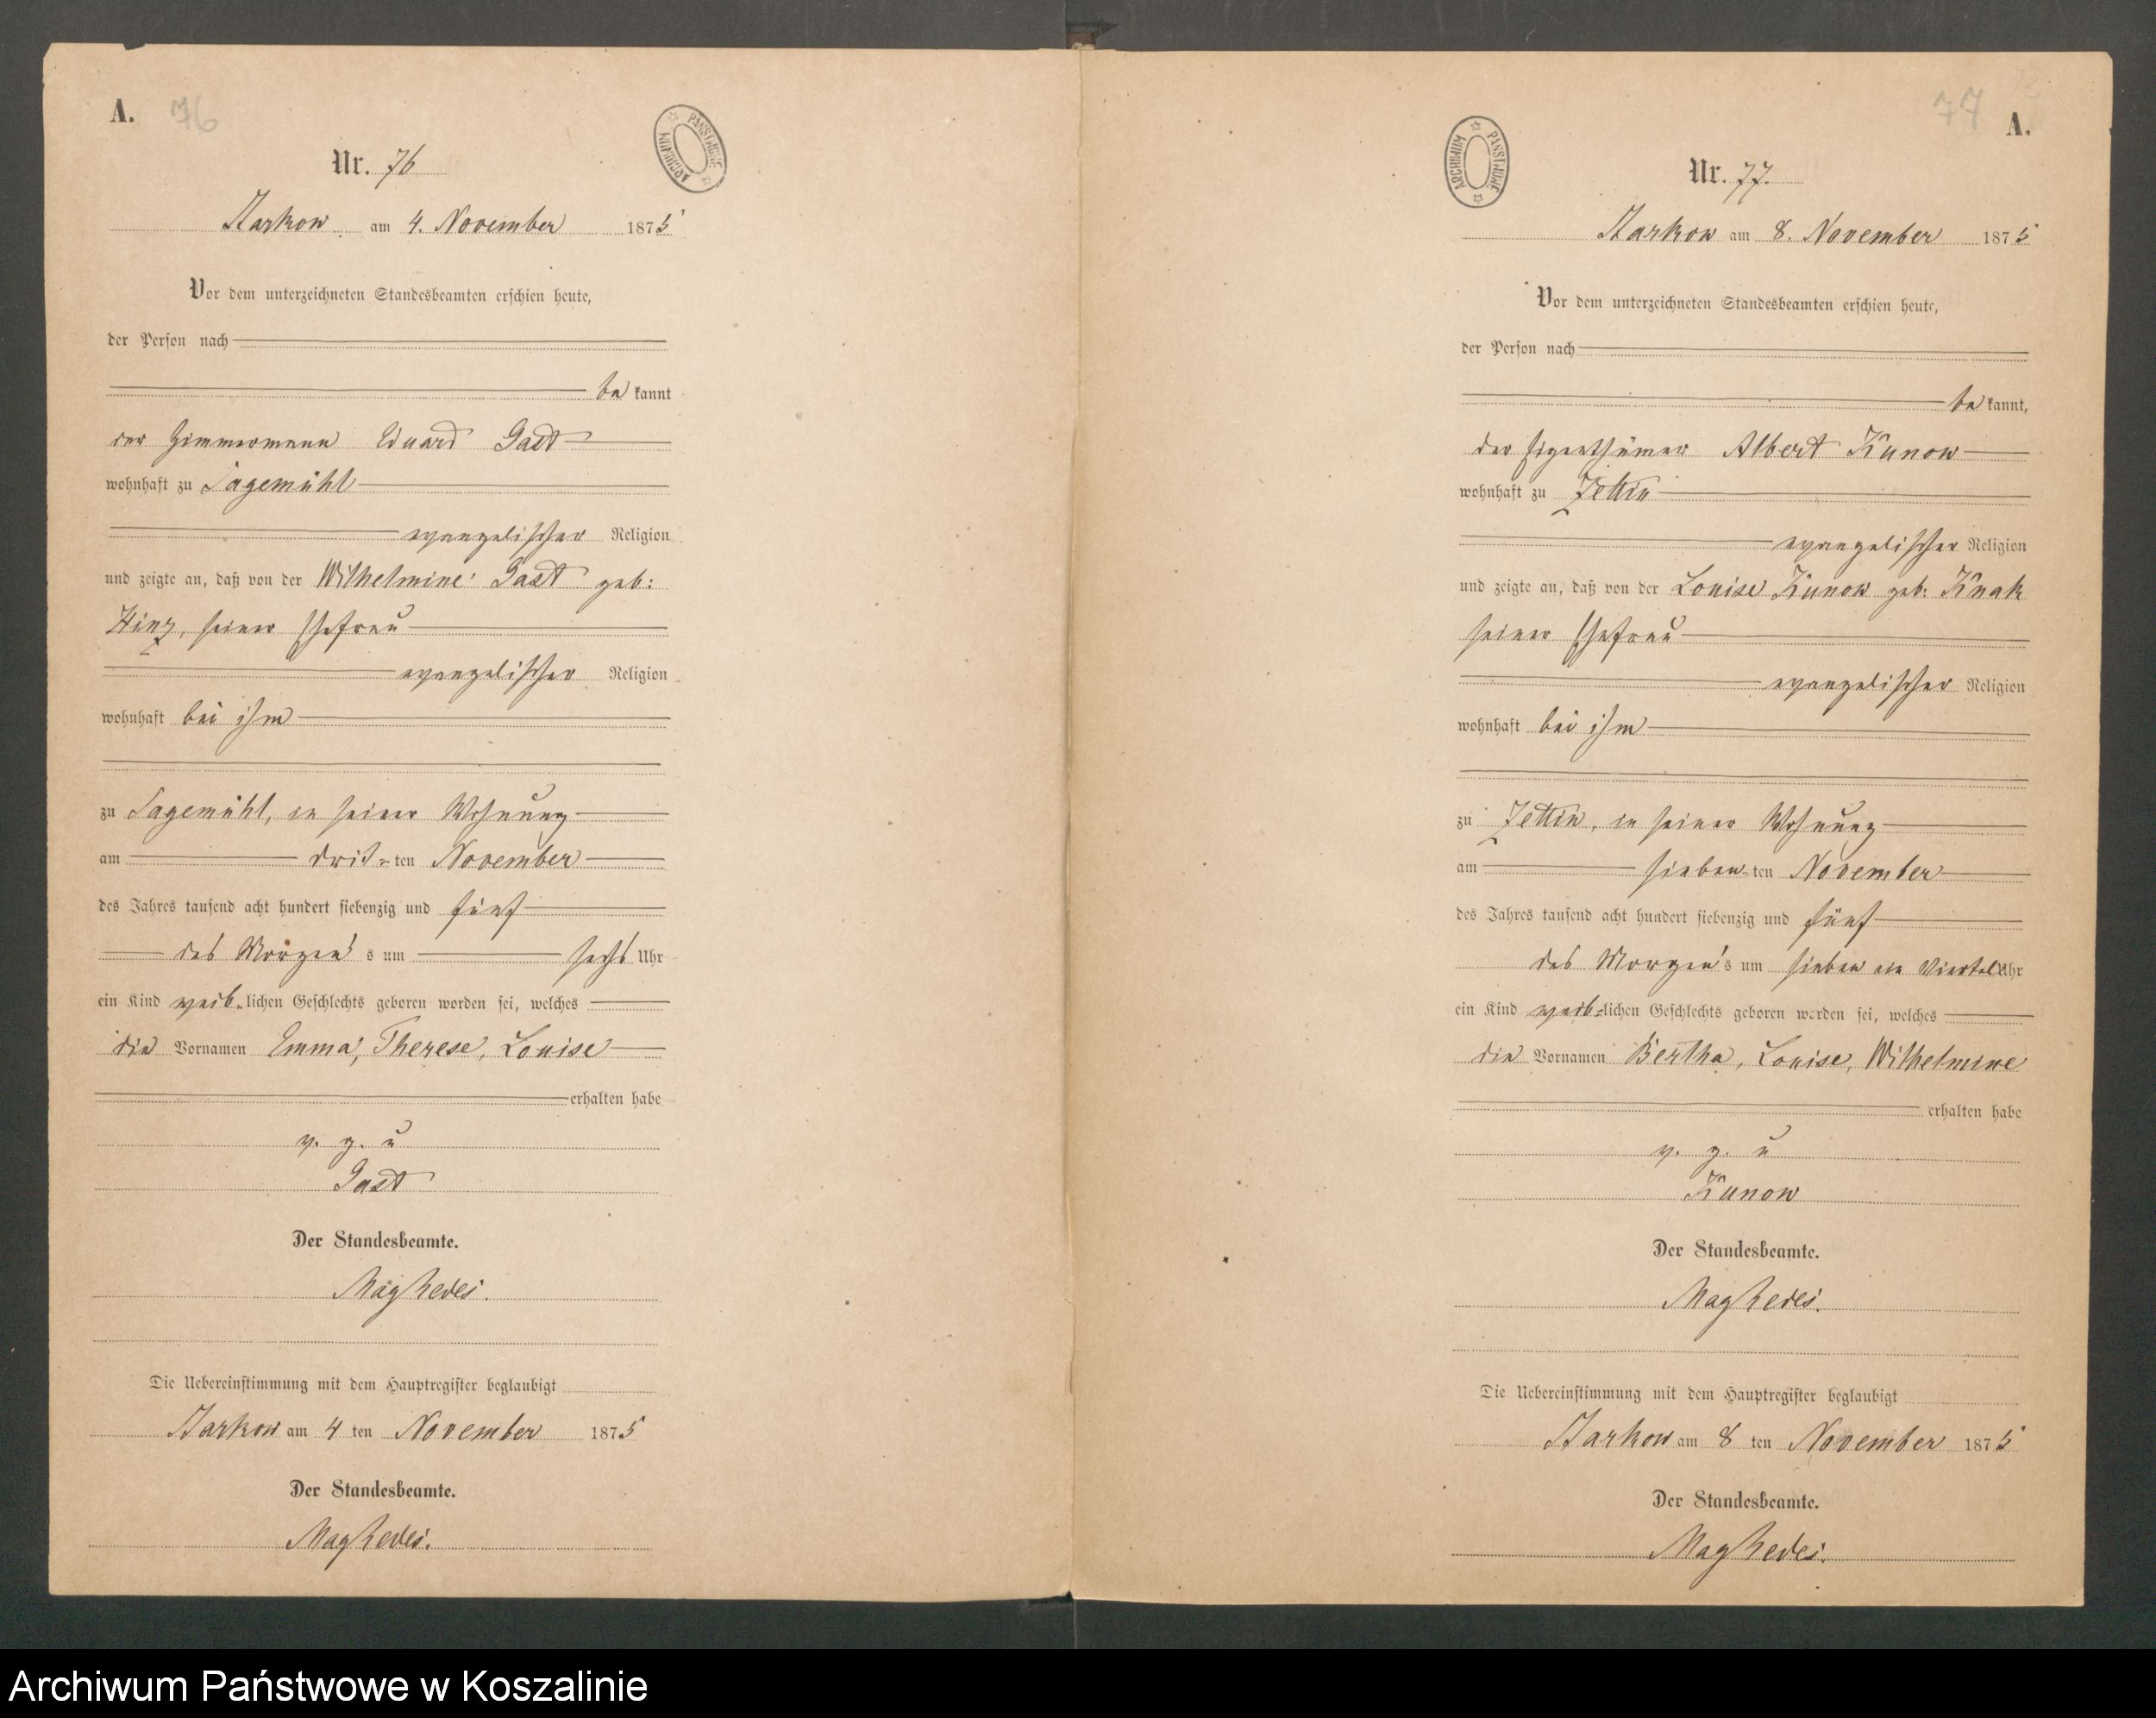 A. 76
ARCHIWUM PAŃSTWOWE
Nr. 76
Starkow am 4. November 1875
Vor dem unterzeichneten Standesbeamten erschien heute,
der Person nach
be kannt
der Zimmermann Eduard Gast
wohnhaft zu Sagemühl
evangelischer Religion
und zeigte an, daß von der Wilhelmine Gast geb:
Hinz, seiner Ehefrau
evangelischer Religion
wohnhaft bei ihm
zu Sagemühl, in seiner Wohnung
am drit-ten November
des Jahres tausend acht hundert siebenzig und fünf
des Morgens um sechs Uhr
ein Kind weib-lichen Geschlechts geboren worden sei, welches
die Vornamen Emma, Therese, Louise
erhalten habe
v. g. u
Gast
Der Standesbeamte.
Die Uebereinstimmung mit dem Hauptregister beglaubigt
Starkow am 4 ten November 1875
Der Standesbeamte.
77 A.
ARCHIWUM PAŃSTWOWE
Nr. 77.
Starkow am 8. November 1875
Vor dem unterzeichneten Standesbeamten erschien heute,
der Person nach
be kannt,
der Eigenthümer Albert Kunow
wohnhaft zu Zettin
evangelischer Religion
und zeigte an, daß von der Louise Kunow geb: Knak
seiner Ehefrau
evangelischer Religion
wohnhaft bei ihm
zu Zettin, in seiner Wohnung
am sieben-ten November
des Jahres tausend acht hundert siebenzig und fünf
des Morgen's um sieben ein Viertel Uhr
ein Kind weib-lichen Geschlechts geboren worden sei, welches
die Vornamen Bertha, Louise, Wilhelmine
erhalten habe
v. g. u
Kunow
Der Standesbeamte.
Die Uebereinstimmung mit dem Hauptregister beglaubigt
Starkow am 8 ten November 1875
Der Standesbeamte.
Archiwum Państwowe w Koszalinie